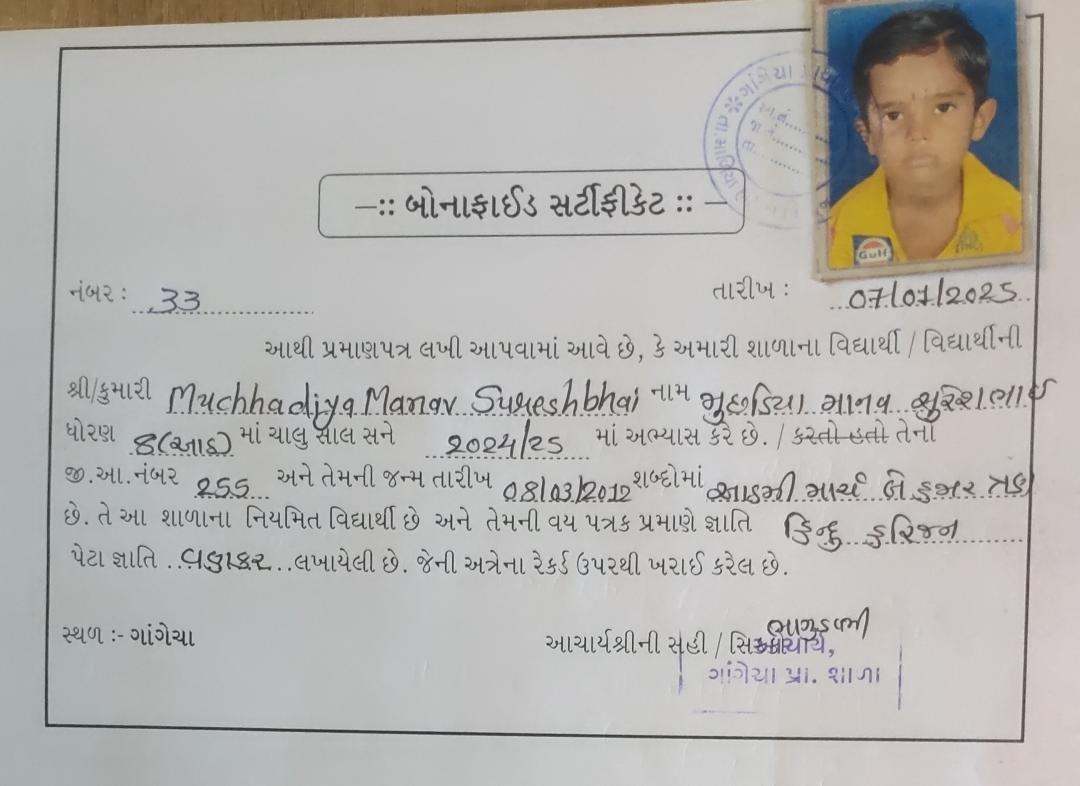 ગાંગેચા
જા.નં.......
તા.......
Gulf
—:: બોનાફાઈડ સર્ટીફીકેટ :: —
નંબર : 33
તારીખ : 07/01/2025
આથી પ્રમાણપત્ર લખી આપવામાં આવે છે, કે અમારી શાળાના વિદ્યાર્થી / વિદ્યાર્થીની
શ્રી/કુમારી Muchhadiya Manav Sureshbhai નામ મુછડિયા માનવ સુરેશભાઈ
ધોરણ 8(આઠ) માં ચાલુ સાલ સને 2024/25 માં અભ્યાસ કરે છે. / કરતો હતો તેનો
જી.આ.નંબર 255 અને તેમની જન્મ તારીખ 08/03/2012 શબ્દોમાં આઠમી માર્ચ બે હજાર
છે. તે આ શાળાના નિયમિત વિદ્યાર્થી છે અને તેમની વય પત્રક પ્રમાણે જ્ઞાતિ હિન્દુ હરિજન
પેટા જ્ઞાતિ ..વણકર.. લખાયેલી છે. જેની અત્રેના રેકર્ડ ઉપરથી ખરાઈ કરેલ છે.
સ્થળ :- ગાંગેચા
આચાર્યશ્રીની સહી / સિક્કો
આચાર્ય,
ગાંગેચા પ્રા. શાળા